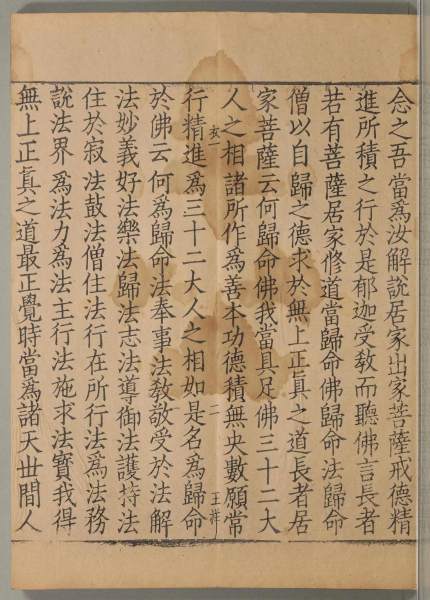 念之吾當爲汝解說居家出家菩薩戒德精
進所積之行於是郁迦受教而聽佛言長者
若有菩薩居家修道當歸命佛歸命法歸命
僧以自歸之德求於無上正眞之道長者居
家菩薩云何歸命佛我當具足佛三十二大
人之相諸所作爲善本功德積無央數願常
亥一 二 王祥
行精進爲三十二大人之相如是名爲歸命
於佛云何爲歸命法奉事法教敬受於法解
法妙義好法樂法歸法志法導御法護持法
住於寂法鼓法僧住法行在所行法爲法務
說法界爲法力爲法主行法施求法寶我得
無上正眞之道最正覺時當爲諸天世間人